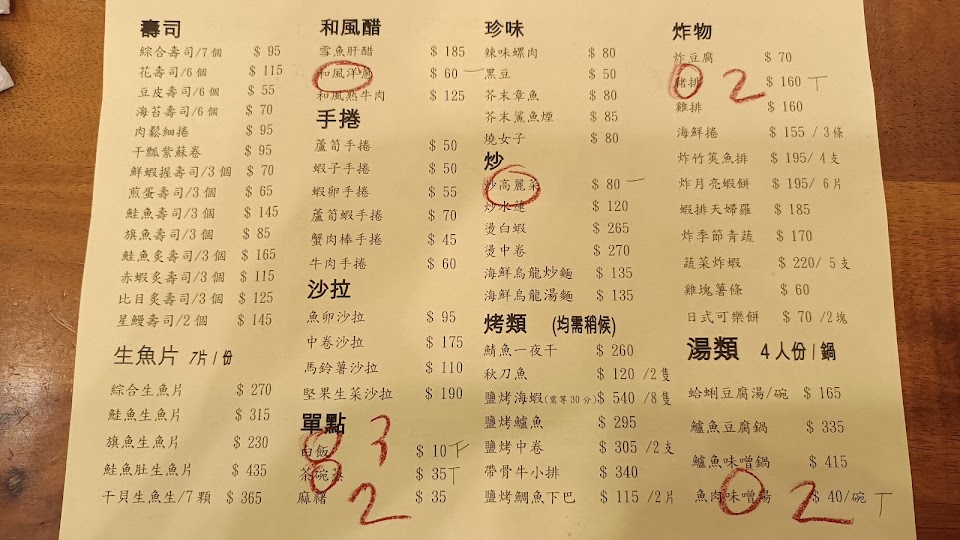 壽司
綜合壽司/7個 $ 95
花壽司/6個 $ 115
豆皮壽司/6個 $ 55
海苔壽司/6個 $ 70
肉鬆細捲 $ 95
干瓢紫蘇卷 $ 95
鮮蝦握壽司/3個 $ 70
煎蛋壽司/3個 $ 65
鮭魚壽司/3個 $ 145
旗魚壽司/3個 $ 85
鮭魚炙壽司/3個 $ 165
赤蝦炙壽司/3個 $ 115
比目炙壽司/3個 $ 125
星鰻壽司/2個 $ 145
生魚片 7片/份
綜合生魚片 $ 270
鮭魚生魚片 $ 315
旗魚生魚片 $ 230
鮭魚肚生魚片 $ 435
干貝生魚生/7顆 $ 365
和風醋
雪魚肝醋 $ 185
和風洋蔥 $ 60 一
和風熟牛肉 $ 125
手捲
蘆筍手捲 $ 50
蝦子手捲 $ 50
蝦卵手捲 $ 55
蘆筍蝦手捲 $ 70
蟹肉棒手捲 $ 45
牛肉手捲 $ 60
沙拉
魚卵沙拉 $ 95
中卷沙拉 $ 175
馬鈴薯沙拉 $ 110
堅果生菜沙拉 $ 190
單點
白飯 3 $ 10 下
茶碗蒸 2 $ 35 T
麻糬 $ 35
珍味
辣味螺肉 $ 80
黑豆 $ 50
芥末章魚 $ 80
芥末鯊魚煙 $ 85
燒女子 $ 80
炒
炒高麗菜 $ 80 一
炒水蓮 $ 120
燙白蝦 $ 265
燙中卷 $ 270
海鮮烏龍炒麵 $ 135
海鮮烏龍湯麵 $ 135
烤類 (均需稍候)
鯖魚一夜干 $ 260
秋刀魚 $ 120 /2隻
鹽烤海蝦(需等30分) $ 540 /8隻
鹽烤鱸魚 $ 295
鹽烤中卷 $ 305 /2支
帶骨牛小排 $ 340
鹽烤鯛魚下巴 $ 115 /2片
炸物
炸豆腐 $ 70
豬排 2 $ 160 T
雞排 $ 160
海鮮捲 $ 155 / 3條
炸竹筴魚排 $ 195/ 4支
炸月亮蝦餅 $ 195/ 6片
蝦排天婦羅 $ 185
炸季節青蔬 $ 170
蔬菜炸蝦 $ 220/ 5支
雞塊薯條 $ 60
日式可樂餅 $ 70 /2塊
湯類 4人份/鍋
蛤蜊豆腐湯/碗 $ 165
鱸魚豆腐鍋 $ 335
鱸魚味噌鍋 $ 415
魚肉味噌湯 2 $ 40/碗 T